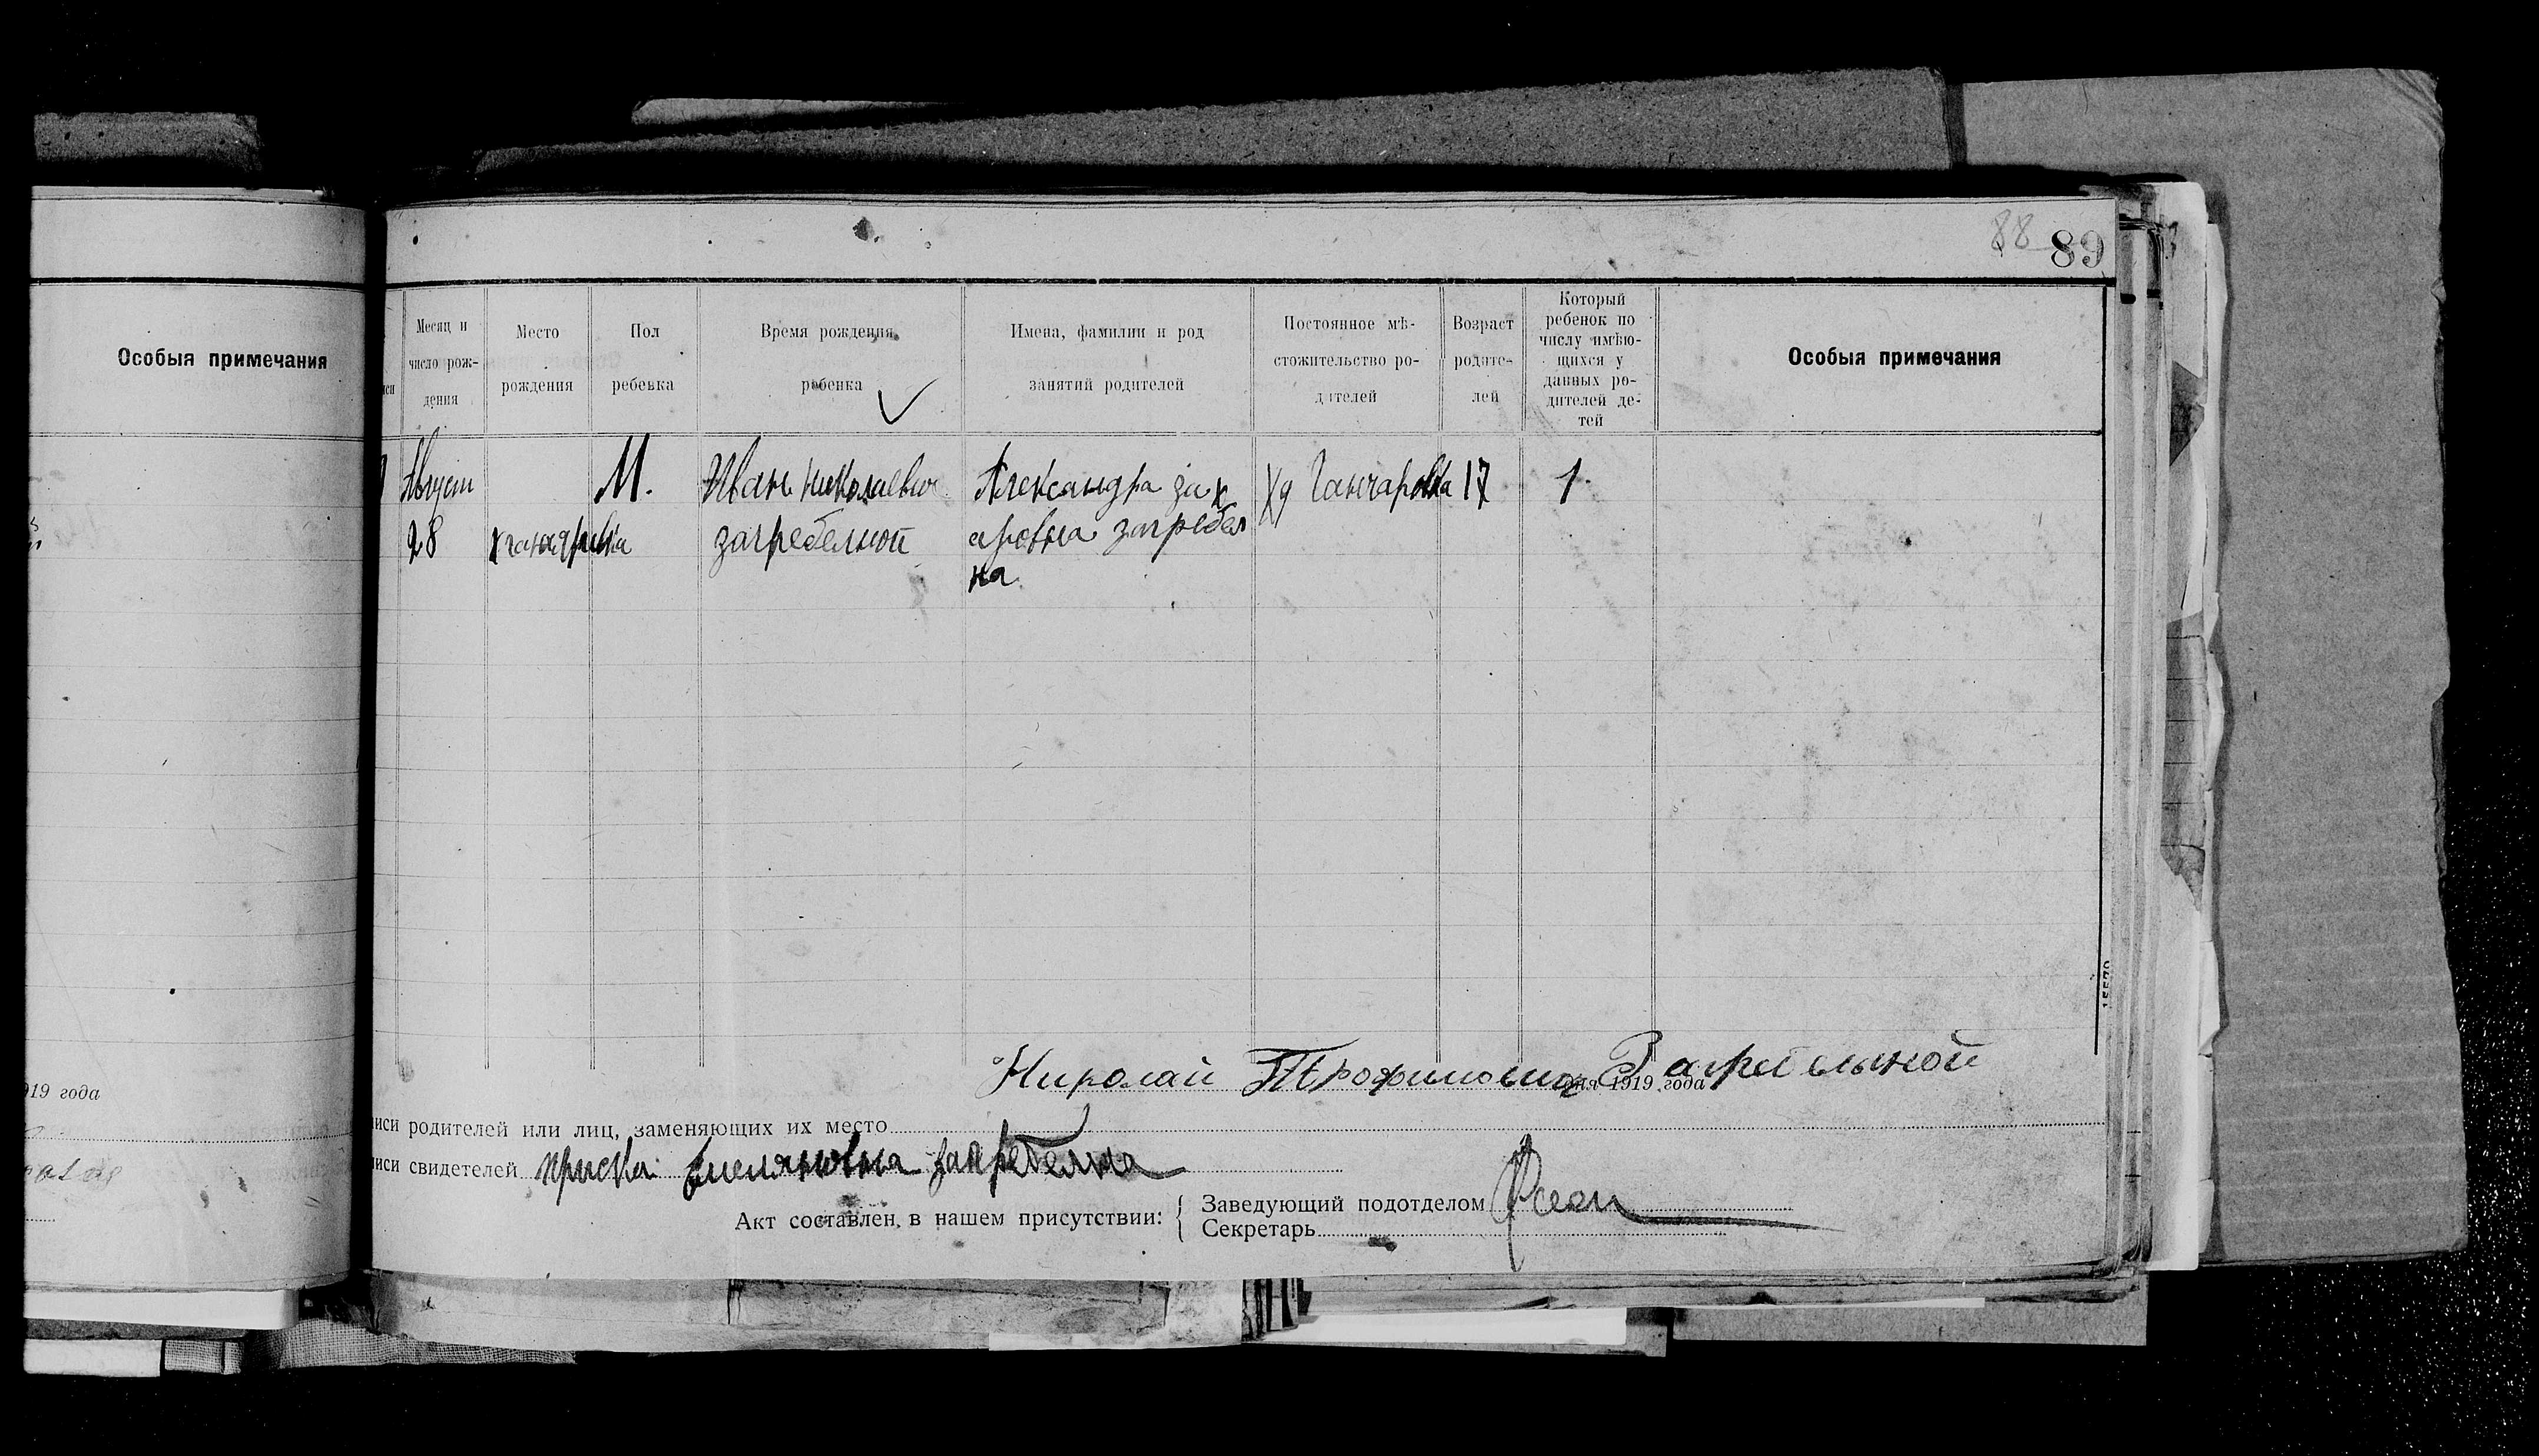 88 89
Особыя примечания
Месяц и число рож-дения
Место рождения
Пол ребенка
Время рождения ребенка
Имена, фамилии и род занятий родителей
Постоянное мѣ-стожительство ро-дителей
Возраст родите-лей
Который ребенок по числу имѣю-щихся у данных ро-дителей де-тей
Особыя примечания
Август М. Иван Николаевич Александра зах Ганчаровка 17 1.
28 загребельной аровна загребел
на
19 года
Николай Трофимович Загребельной
дня 1919 года
иси родителей или лиц, заменяющих их место
иси свидетелей приска Емеляновна загребелна
Акт составлен в нашем присутствии: Заведующий подотделом
Секретарь
15570